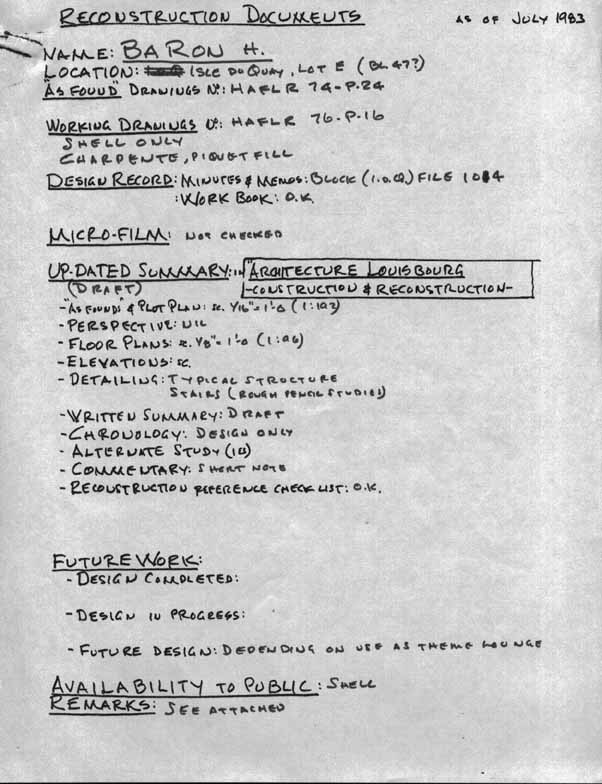 RECONSTRUCTION DOCUMENTS AS OF JULY 1983
NAME: BARON H.
LOCATION: ISLE DU QUAY, LOT E (BL 4??)
"AS FOUND" DRAWINGS No: HAFLR 74-P-24
WORKING DRAWINGS No: HAFLR 76-P-16
SHELL ONLY
CHARPENTE, PIQUET FILL
DESIGN RECORD: MINUTES & MEMOS: BLOCK (I.D.Q.) FILE
: WORK BOOK: O.K.
MICRO-FILM: NOT CHECKED
UP-DATED SUMMARY: in "ARCHITECTURE LOUISBOURG
(DRAFT) -CONSTRUCTION & RECONSTRUCTION-
-"AS FOUNDS" & PLOT PLAN: sc. 1/16"=1'-0 (1:192)
-PERSPECTIVE: NIL
-FLOOR PLANS: sc. 1/8"=1'-0 (1:96)
-ELEVATIONS: sc.
-DETAILING: TYPICAL STRUCTURE
STAIRS (ROUGH PENCIL STUDIES)
-WRITTEN SUMMARY: DRAFT
-CHRONOLOGY: DESIGN ONLY
-ALTERNATE STUDY
-COMMENTARY: SHORT NOTE
-RECONSTRUCTION REFERENCE CHECK LIST: O.K.
FUTURE WORK:
-DESIGN COMPLETED:
-DESIGN IN PROGRESS:
-FUTURE DESIGN: DEPENDING ON USE AS THEME LOUNGE
AVAILABILITY TO PUBLIC: SHELL
REMARKS: SEE ATTACHED